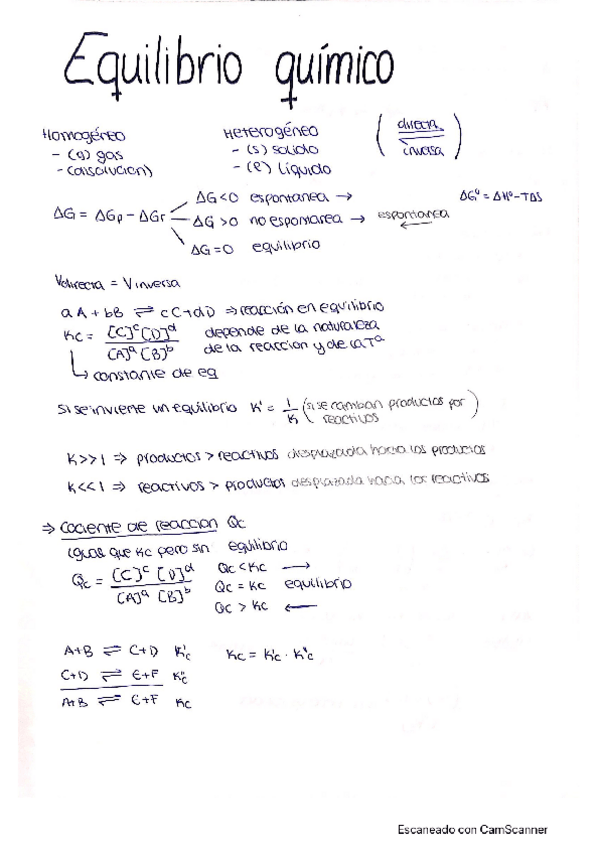 Equilibrio químico
Homogéneo
- (g) gas
- (disolucion)
Heterogéneo
- (s) solido
- (l) líquido
( directa ⇌ inversa )
ΔG = ΔGp - ΔGr
ΔG<0 espontanea →
ΔG >0 no espontanea → espontanea ←
ΔG=0 equilibrio
ΔG⁰ = ΔH⁰ - TΔS
Vdirecta = Vinversa
aA + bB ⇌ cC + dD ⇒ reacción en equilibrio
Kc = [C]ᶜ [D]ᵈ / [A]ᵃ [B]ᵇ
depende de la naturaleza
de la reaccion y de la Tª
↳ constante de eq
Si se invierte un equilibrio K' = 1/K (si se cambian productos por reactivos)
K>>1 ⇒ productos > reactivos desplazada hacia los productos
K<<1 ⇒ reactivos > productos desplazada hacia los reactivos
⇒ Cociente de reaccion Qc
igual que Kc pero sin equilibrio
Qc = [C]ᶜ [D]ᵈ / [A]ᵃ [B]ᵇ
Qc < Kc →
Qc = Kc equilibrio
Qc > Kc ←
A+B ⇌ C+D K'c
Kc = K'c · K''c
C+D ⇌ E+F K''c
A+B ⇌ E+F Kc
Escaneado con CamScanner